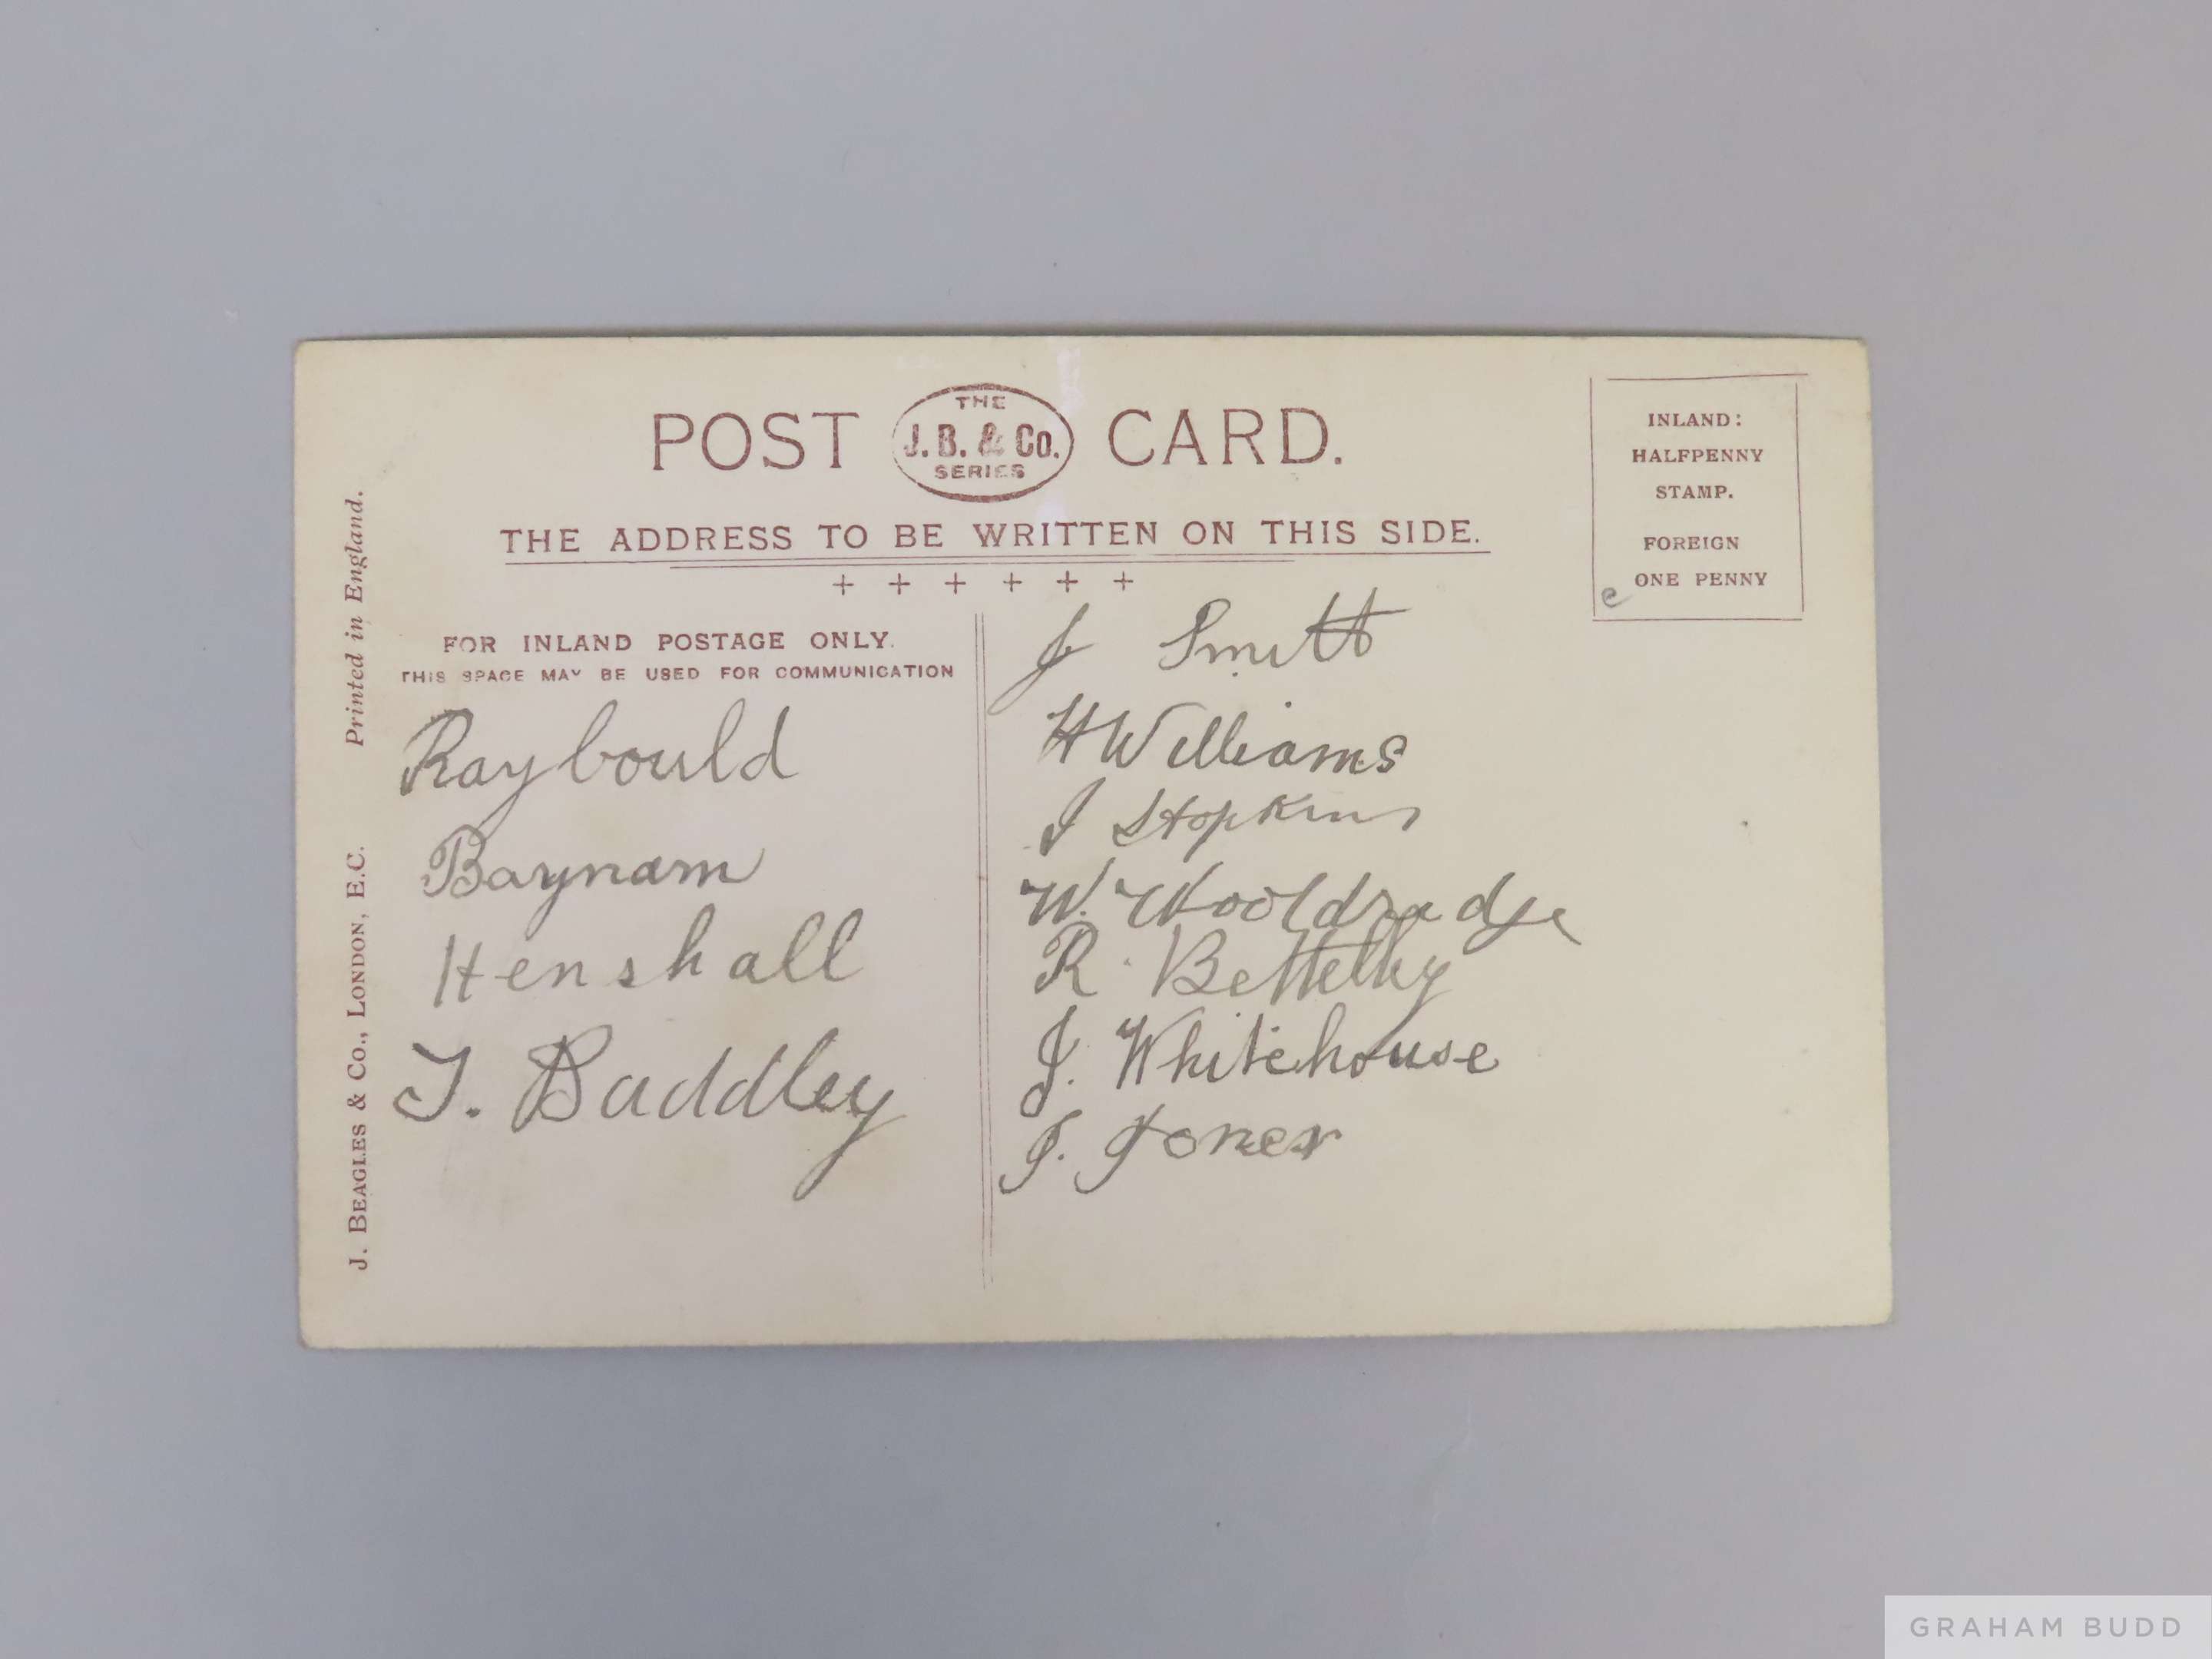 POST CARD.
THE
J. B. & Co.
SERIES
THE ADDRESS TO BE WRITTEN ON THIS SIDE.
+ + + + + +
INLAND:
HALFPENNY
STAMP.
FOREIGN
ONE PENNY
e
Printed in England.
J. BEAGLES & Co., LONDON, E.C.
FOR INLAND POSTAGE ONLY.
THIS SPACE MAY BE USED FOR COMMUNICATION
Raybould
Baynam
Henshall
T. Baddley
J Smith
H Williams
J Hopkins
W. Wooldradge
R. Bettelley
J. Whitehouse
J. Jones
GRAHAM BUDD